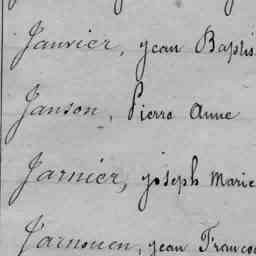 Janvier, jean Baptis
Janson, Pierre Anne
Jarnier, joseph Marie
Jarnouen, jean Francoi